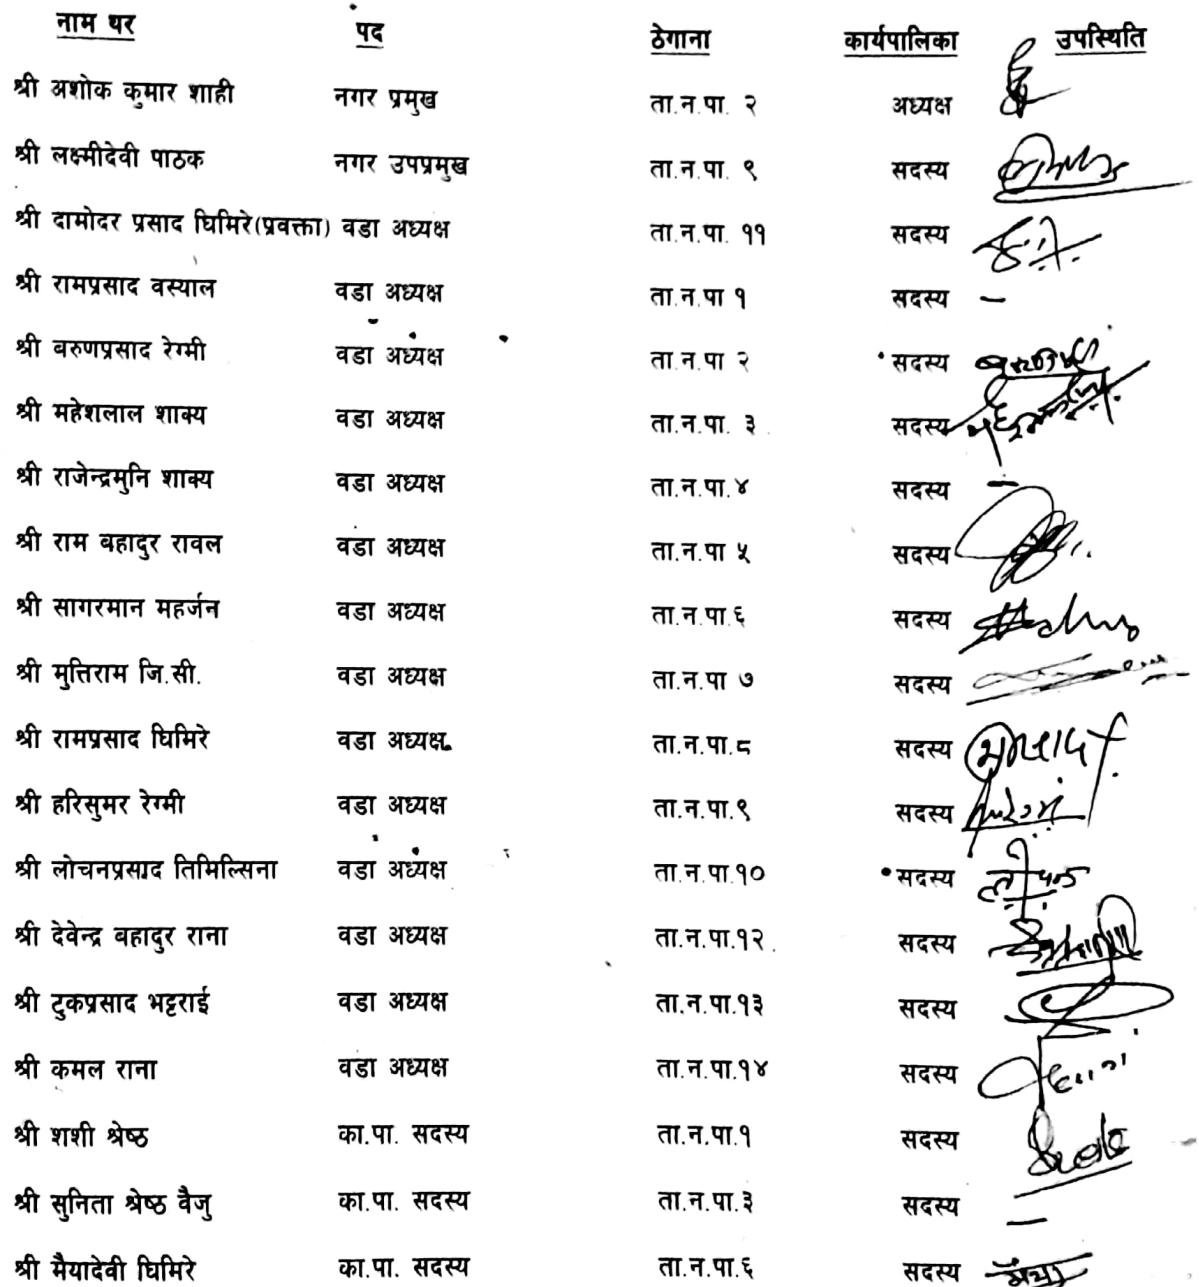 नाम थर पद ठेगाना कार्यपालिका उपस्थिति
श्री अशोक कुमार शाही नगर प्रमुख ता.न.पा. २ अध्यक्ष
श्री लक्ष्मीदेवी पाठक नगर उपप्रमुख ता.न.पा. ९ सदस्य
श्री दामोदर प्रसाद घिमिरे(प्रवक्ता) वडा अध्यक्ष ता.न.पा. ११ सदस्य
श्री रामप्रसाद वस्याल वडा अध्यक्ष ता.न.पा १ सदस्य –
श्री बरुणप्रसाद रेग्मी वडा अध्यक्ष ता.न.पा २ सदस्य
श्री महेशलाल शाक्य वडा अध्यक्ष ता.न.पा. ३ सदस्य
श्री राजेन्द्रमुनि शाक्य वडा अध्यक्ष ता.न.पा.४ सदस्य –
श्री राम बहादुर रावल वडा अध्यक्ष ता.न.पा ५ सदस्य
श्री सागरमान महर्जन वडा अध्यक्ष ता.न.पा.६ सदस्य
श्री मुक्तिराम जि.सी. वडा अध्यक्ष ता.न.पा ७ सदस्य
श्री रामप्रसाद घिमिरे वडा अध्यक्ष ता.न.पा.८ सदस्य
श्री हरिसुमर रेग्मी वडा अध्यक्ष ता.न.पा.९ सदस्य
श्री लोचनप्रसाद तिमिल्सिना वडा अध्यक्ष ता.न.पा.१० सदस्य
श्री देवेन्द्र बहादुर राना वडा अध्यक्ष ता.न.पा.१२ सदस्य
श्री टुकप्रसाद भट्टराई वडा अध्यक्ष ता.न.पा.१३ सदस्य
श्री कमल राना वडा अध्यक्ष ता.न.पा.१४ सदस्य
श्री शशी श्रेष्ठ का.पा. सदस्य ता.न.पा.१ सदस्य
श्री सुनिता श्रेष्ठ वैजु का.पा. सदस्य ता.न.पा.३ सदस्य –
श्री मैयादेवी घिमिरे का.पा. सदस्य ता.न.पा.६ सदस्य